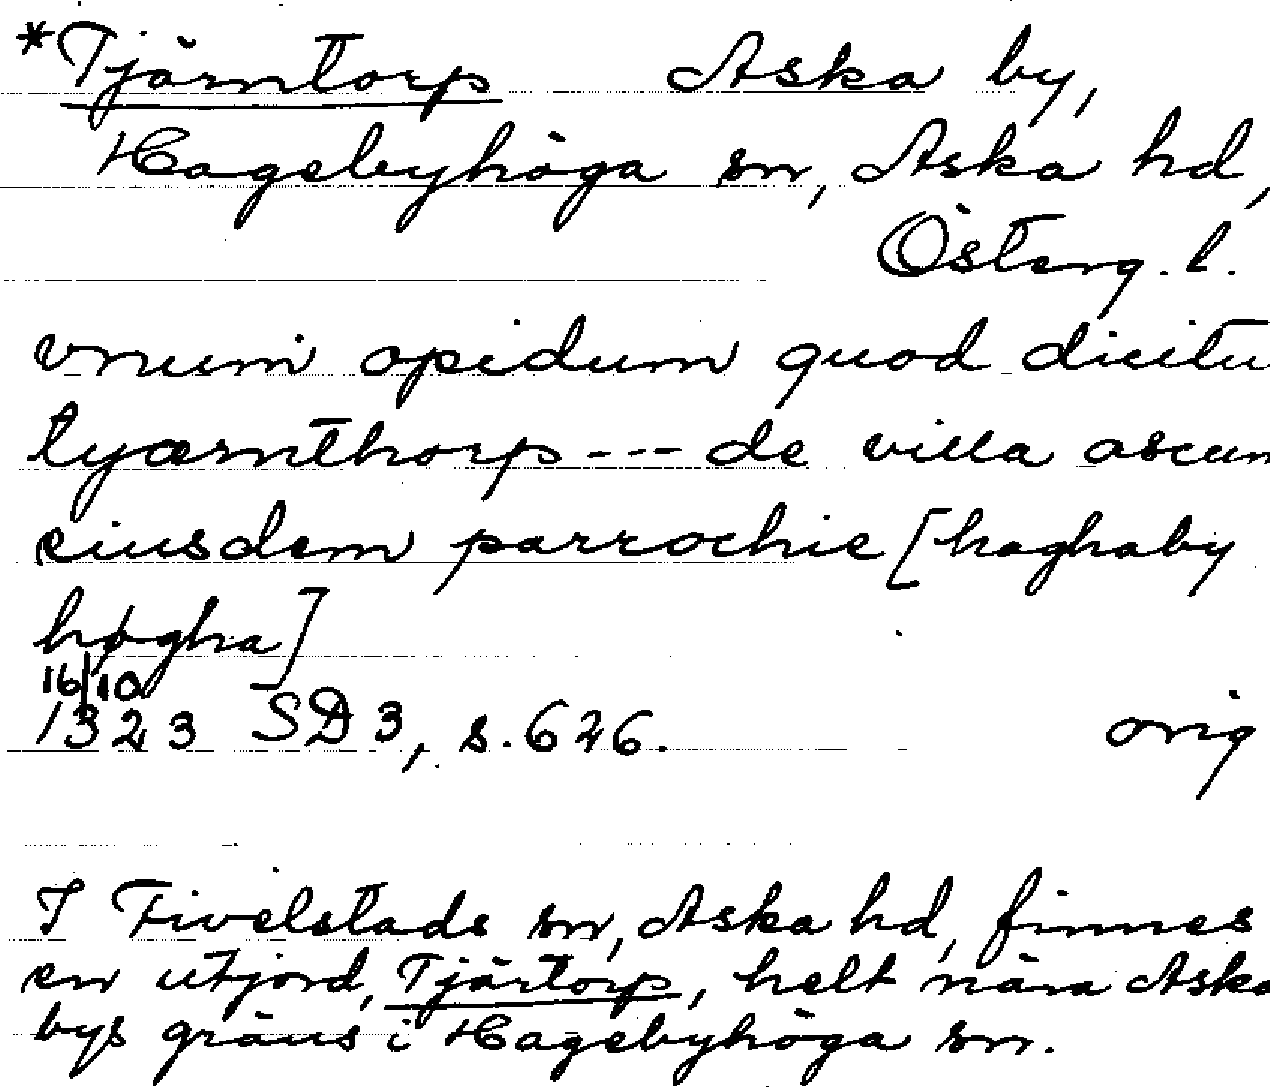 *Tjärntorp Aska by,
Hagebyhöga sn, Aska hd,
Österg. l.
vnum opidum quod dicitu
tyærnthorp --- de villa ascum
eiusdem parrochie [haghaby
høgha]
16/10
1323 SD 3, s. 626. orig
I Fivelstads sn, Aska hd, finnes
en utjord, Tjärtorp, helt nära Aska
bys gräns i Hagebyhöga sn.